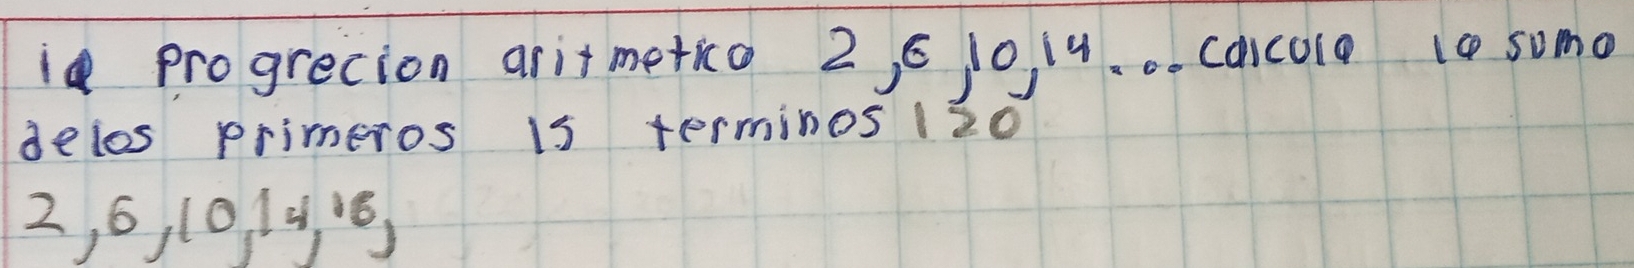 la progrecion aritmetica 2,6,10,14... calcola la suma
delos primeros 15 terminos 120
2,6,10,14,16,